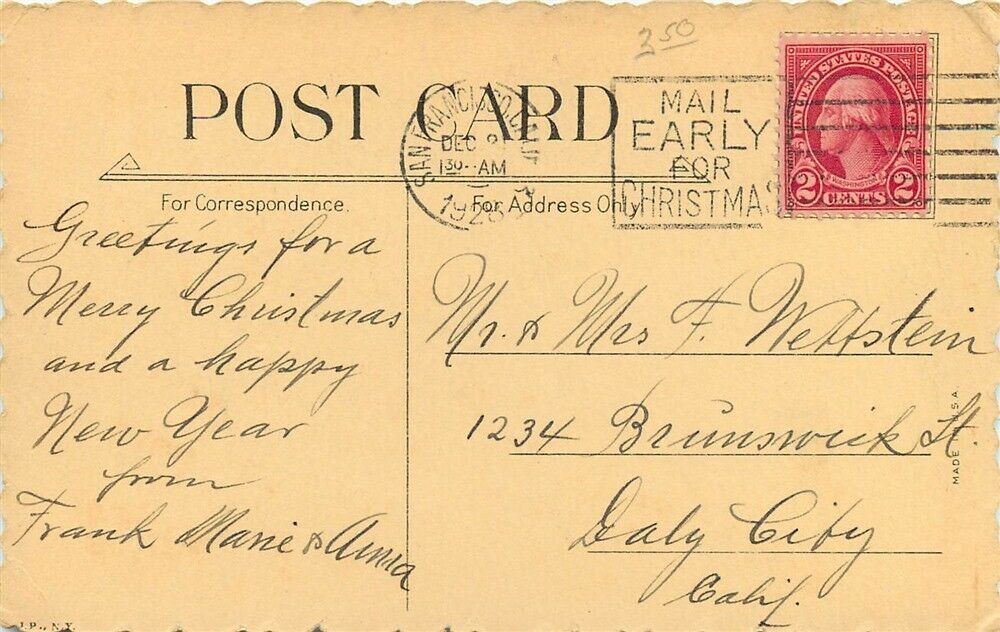 3.50
POST CARD
SAN FRANCISCO, CALIF.
DEC 21
130 AM
1928
MAIL
EARLY
FOR
CHRISTMAS
UNITED STATES POSTAGE
WASHINGTON
2 CENTS 2
For Correspondence.
For Address Only.
Greetings for a
Merry Christmas
and a happy
New Year
from
Frank Marie & Anna
Mr. & Mrs F. Wettstein
1234 Brunswick St.
Daly City
Calif.
MADE IN U.S.A.
J.P., N.Y.